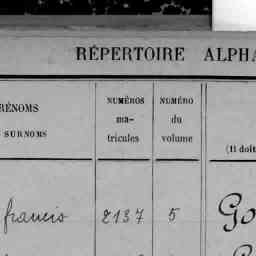 RÉPERTOIRE ALPHA
RÉNOMS
SURNOMS
NUMÉROS
ma-
tricules
NUMÉRO
du
volume
(Il doit
francis 2137 5 Go